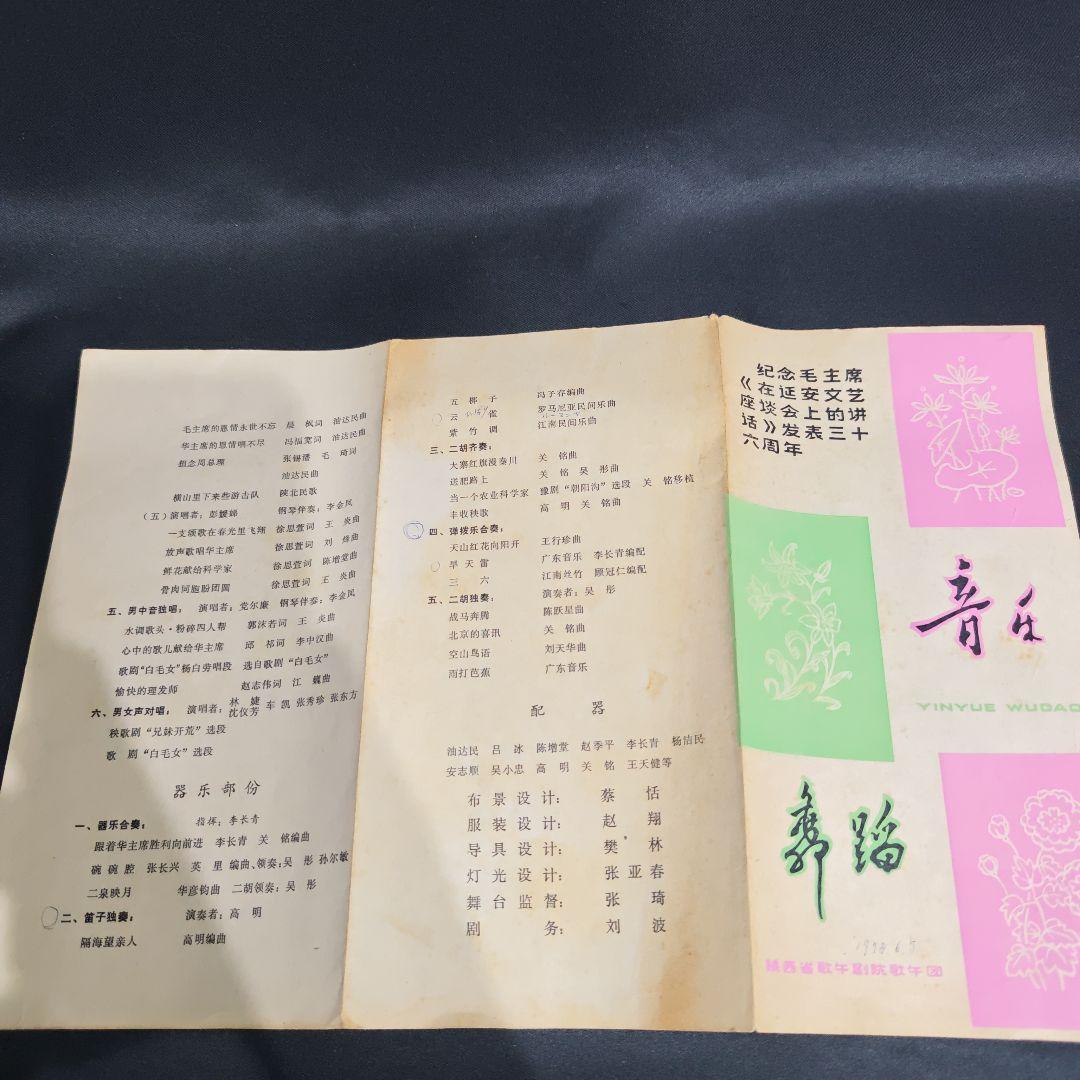 毛主席的恩情永世不忘 晨枫词 油达民曲
华主席的恩情唱不尽 冯福宽词 油达民曲
想念周总理 张锡潘 毛琦词
油达民曲
横山里下来些游击队 陕北民歌
（五）演唱者：彭媛娣 钢琴伴奏：李金凤
一支颂歌在春光里飞翔 徐思萱词 王炎曲
放声歌唱华主席 徐思萱词 刘烽曲
鲜花献给科学家 徐思萱词 陈增堂曲
骨肉同胞盼团圆 徐思萱词 王炎曲
五、男中音独唱： 演唱者：党尔廉 钢琴伴奏：李金凤
水调歌头·粉碎四人帮 郭沫若词 王炎曲
心中的歌儿献给华主席 邱祁词 李中汉曲
歌剧“白毛女”杨白劳唱段 选自歌剧“白毛女”
愉快的理发师 赵志伟词 江巍曲
六、男女声对唱： 演唱者： 林婕 车凯 张秀珍 张东方
沈仪芳
秧歌剧“兄妹开荒”选段
歌剧“白毛女”选段
器乐部份
一、器乐合奏： 指挥：李长青
跟着华主席胜利向前进 李长青 关铭编曲
碗碗腔 张长兴 英里 编曲、领奏：吴彤 孙尔敏
二泉映月 华彦钧曲 二胡领奏：吴彤
二、笛子独奏： 演奏者：高明
隔海望亲人 高明编曲
五梆子 冯子存编曲
云雀 罗马尼亚民间乐曲
紫竹调 江南民间乐曲
三、二胡齐奏：
大寨红旗漫秦川 关铭曲
送肥路上 关铭 吴彤曲
当一个农业科学家 豫剧“朝阳沟”选段 关铭移植
丰收秧歌 高明 关铭曲
四、弹拨乐合奏：
天山红花向阳开 王行珍曲
旱天雷 广东音乐 李长青编配
三六 江南丝竹 顾冠仁编配
五、二胡独奏： 演奏者：吴彤
战马奔腾 陈跃星曲
北京的喜讯 关铭曲
空山鸟语 刘天华曲
雨打芭蕉 广东音乐
配器
油达民 吕冰 陈增堂 赵季平 李长青 杨洁民
安志顺 吴小忠 高明 关铭 王天健等
布景设计： 蔡恬
服装设计： 赵翔
导具设计： 樊林
灯光设计： 张亚春
舞台监督： 张琦
剧务： 刘波
纪念毛主席
《在延安文艺
座谈会上的讲
话》发表三十
六周年
音乐
YINYUE WUDAO
舞蹈
1978.6.5
陕西省歌午剧院歌午团